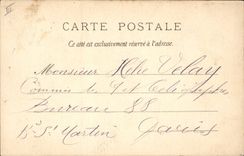 CARTE POSTALE
Ce côté est exclusivement réservé à l'adresse.
Monsieur Velay
Commis
Bureau 88
Bd St Martin Paris